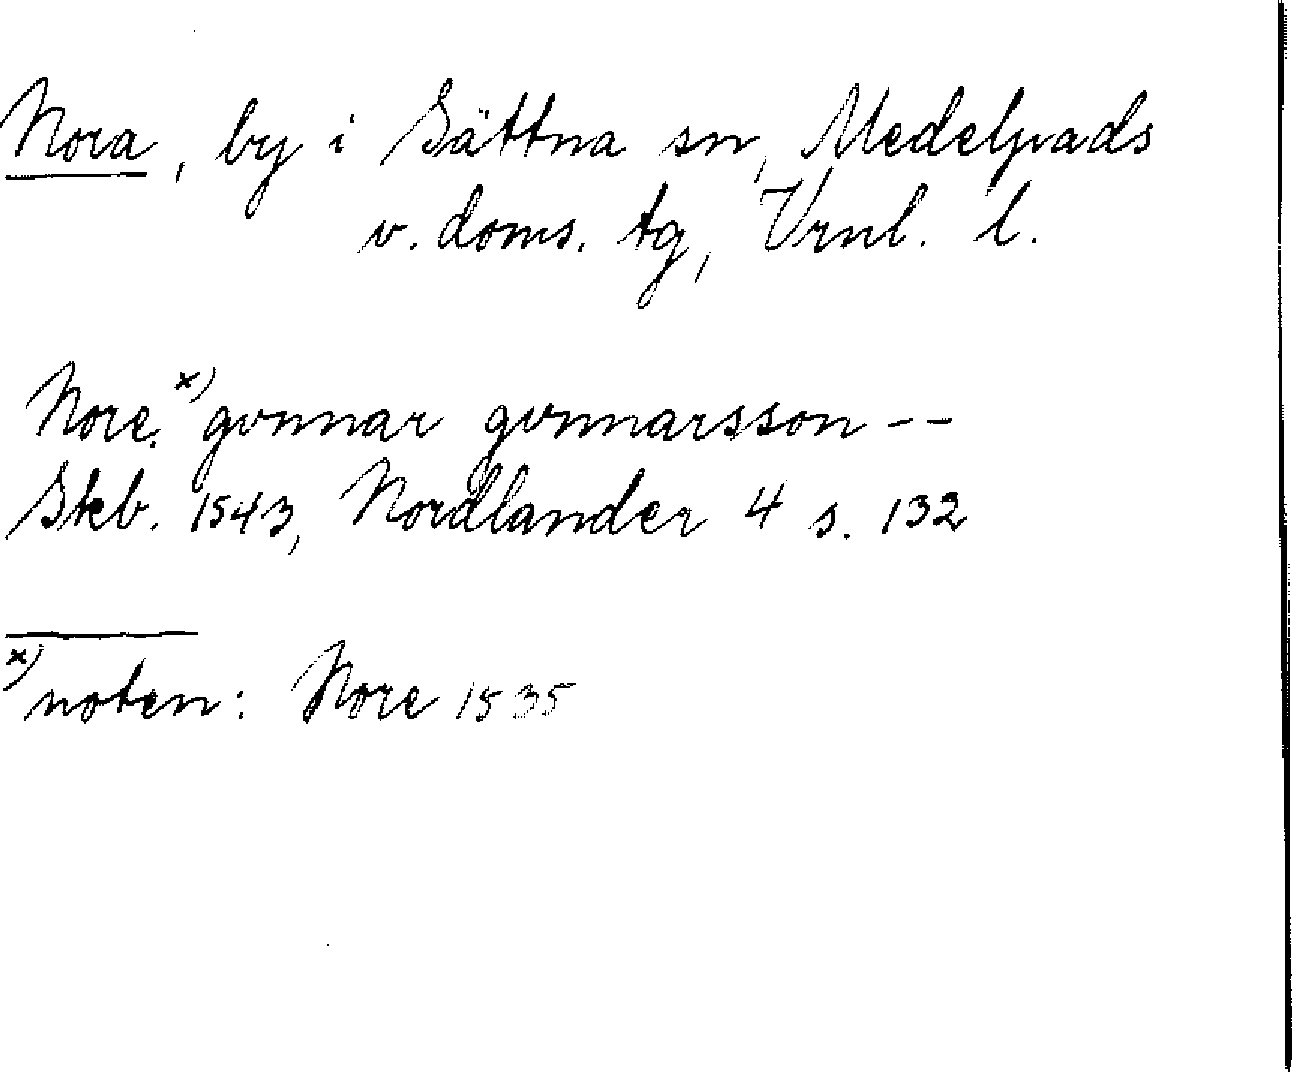 Nora, by i Sättna sn, Medelpads
v. doms. tg, Vrnl. l.
Nore. x) gvnnar gvnnarsson --
Skb. 1543, Nordlander 4 s. 132
x) noten: Nore 1535